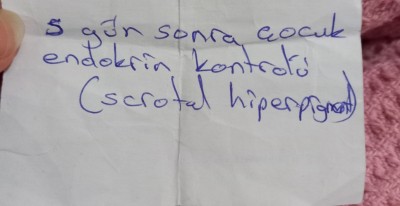 5 gün sonra çocuk
endokrin kontrolü
(scrotal hiperpigment)